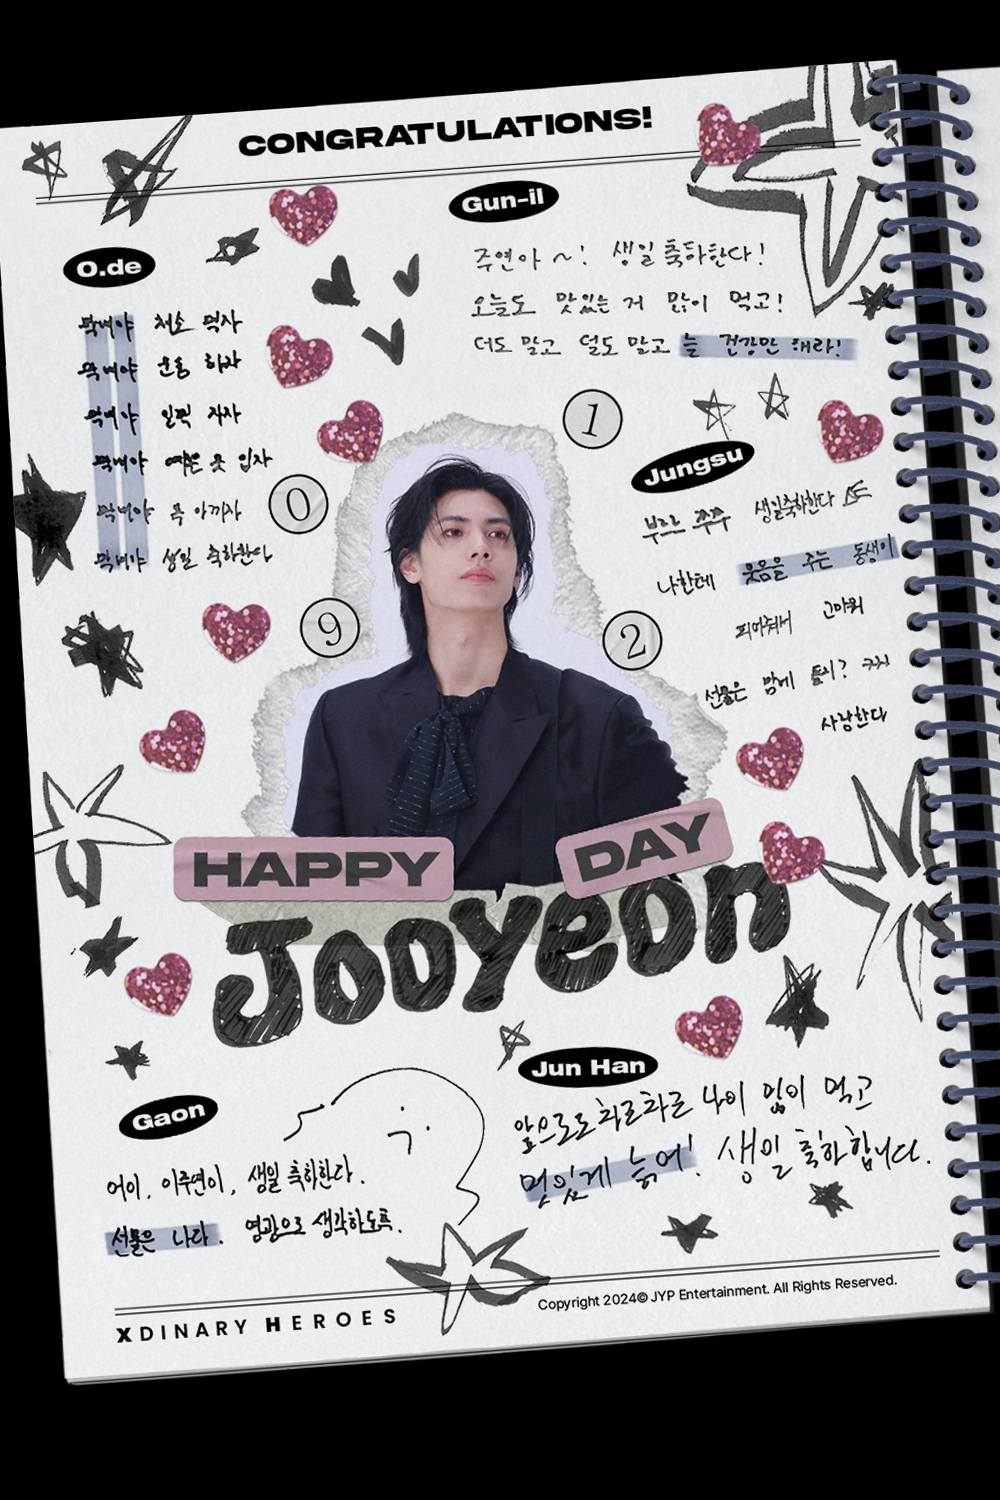 CONGRATULATIONS!
Gun-il
주연아 ~! 생일 축하한다!
오늘도 맛있는 거 많이 먹고!
더도 말고 덜도 말고 늘 건강만 해라!
O.de
막내야 채소 먹자
막내야 운동 하자
막내야 일찍 자자
막내야 예쁜 옷 입자
막내야 폭 아끼자
막내야 생일 축하한다
1
0
9
2
Jungsu
쭈쭈 생일축하한다
나한테 웃음을 주는 동생이
되어줘서 고마워
선물은 맘에 들지?
사랑한다
HAPPY DAY
Jooyeon
Gaon
어이, 이주연이, 생일 축하한다.
선물은 나다. 영광으로 생각하도록.
Jun Han
앞으로도 차근차근 나이 많이 먹고
멋있게 늙어! 생일 축하합니다.
XDINARY HEROES
Copyright 2024© JYP Entertainment. All Rights Reserved.